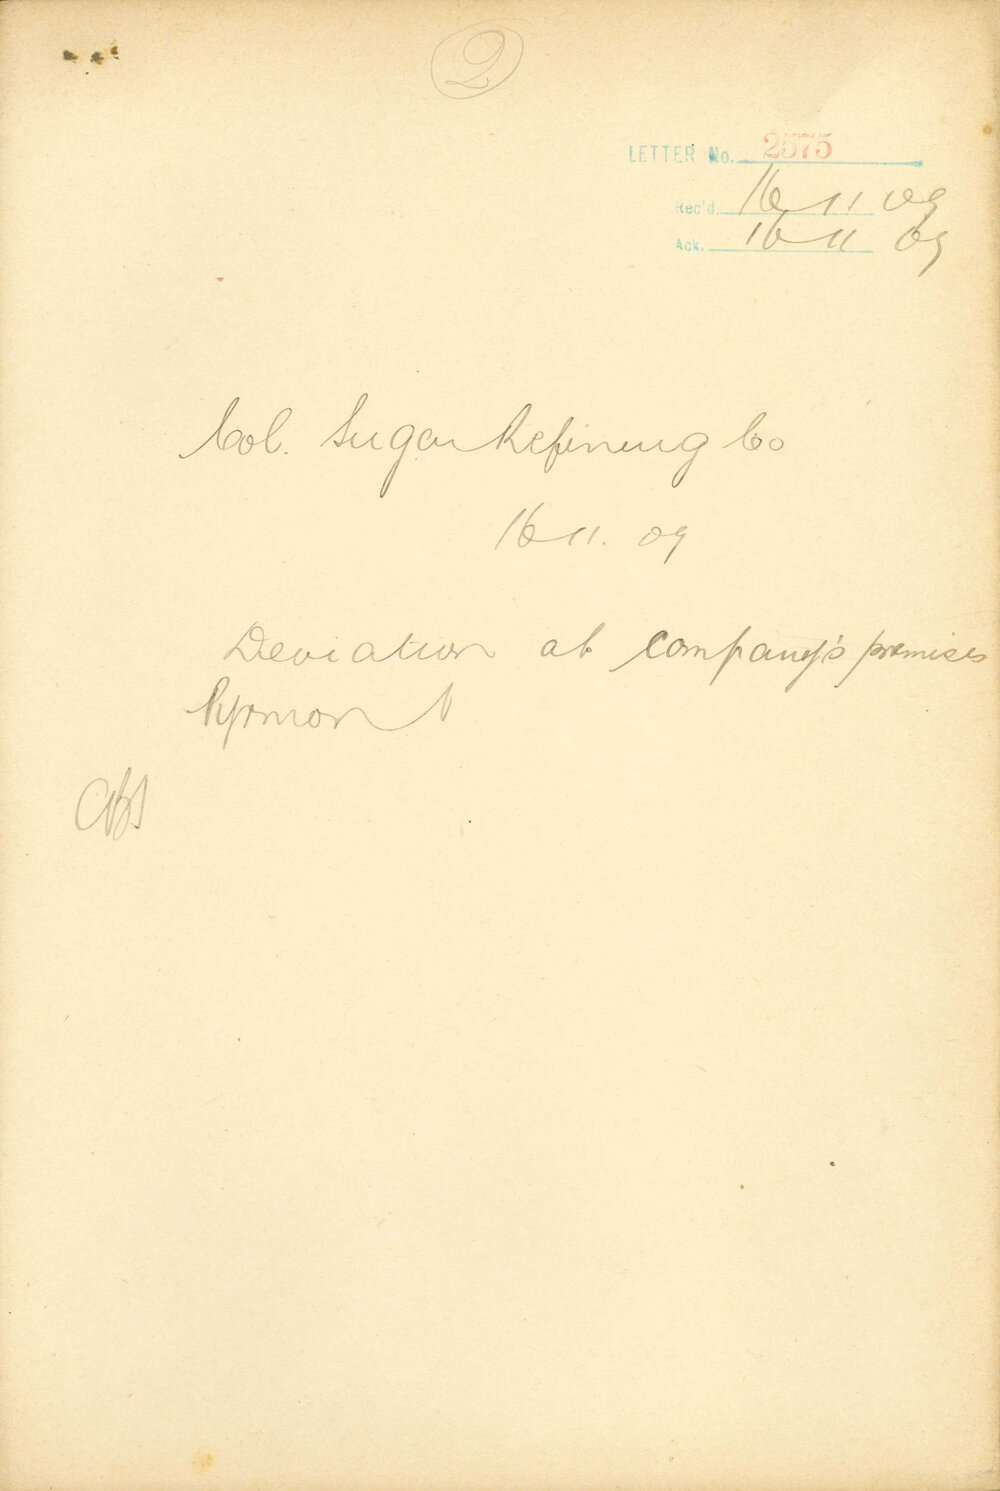 2
LETTER No. 2575
Rec'd 16 11 09
Ack. 16 11 09
Col. Sugar Refining Co
16 11. 09
Deviation at company's premises
Pyrmont